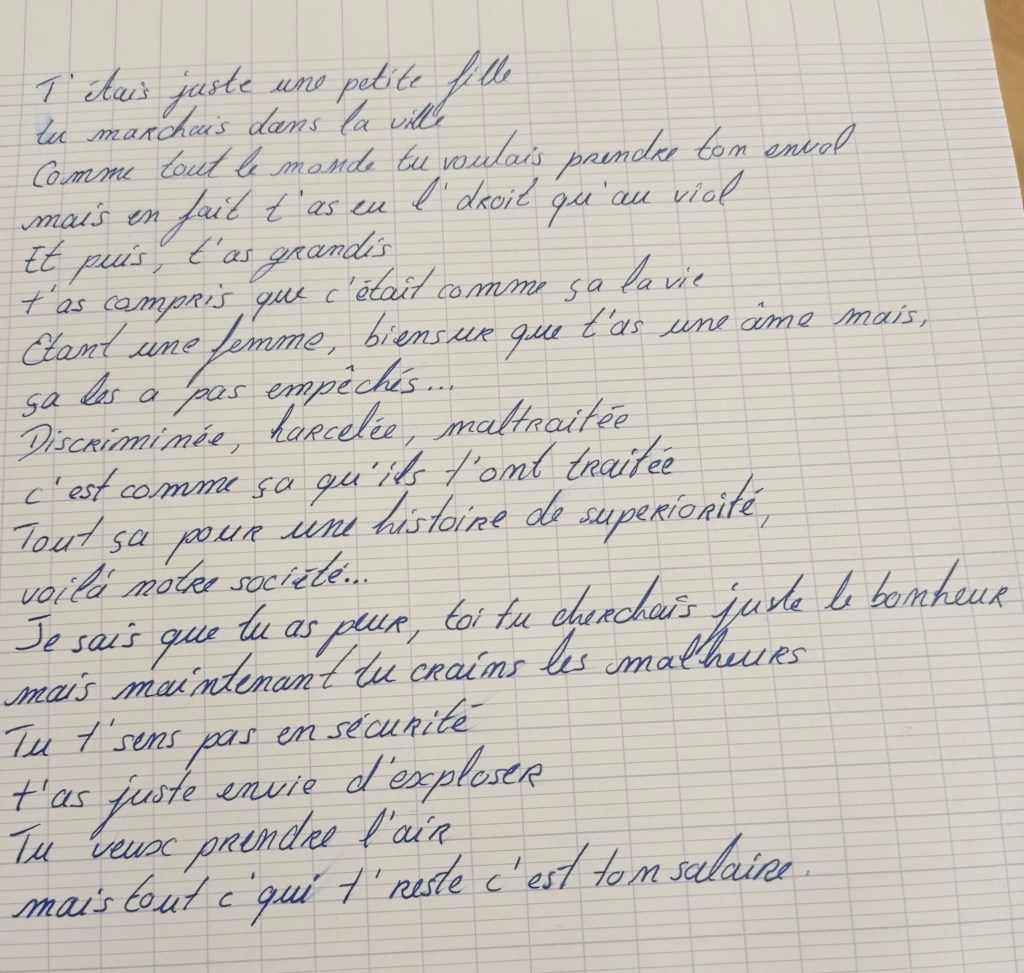 T'étais juste une petite fille
tu marchais dans la ville
Comme tout le monde tu voulais prendre ton envol
mais en fait t'as eu l'droit qu'au viol
Et puis, t'as grandis
t'as compris que c'était comme ça la vie
Etant une femme, biensur que t'as une âme mais,
ça les a pas empêchés...
Discriminée, harcelée, maltraitée
c'est comme ça qu'ils t'ont traitée
Tout ça pour une histoire de superiorité,
voilà notre société...
Je sais que tu as peur, toi tu cherchais juste le bonheur
mais maintenant tu crains les malheurs
Tu t'sens pas en sécurité
t'as juste envie d'exploser
Tu veux prendre l'air
mais tout c'qui t'reste c'est ton salaire.